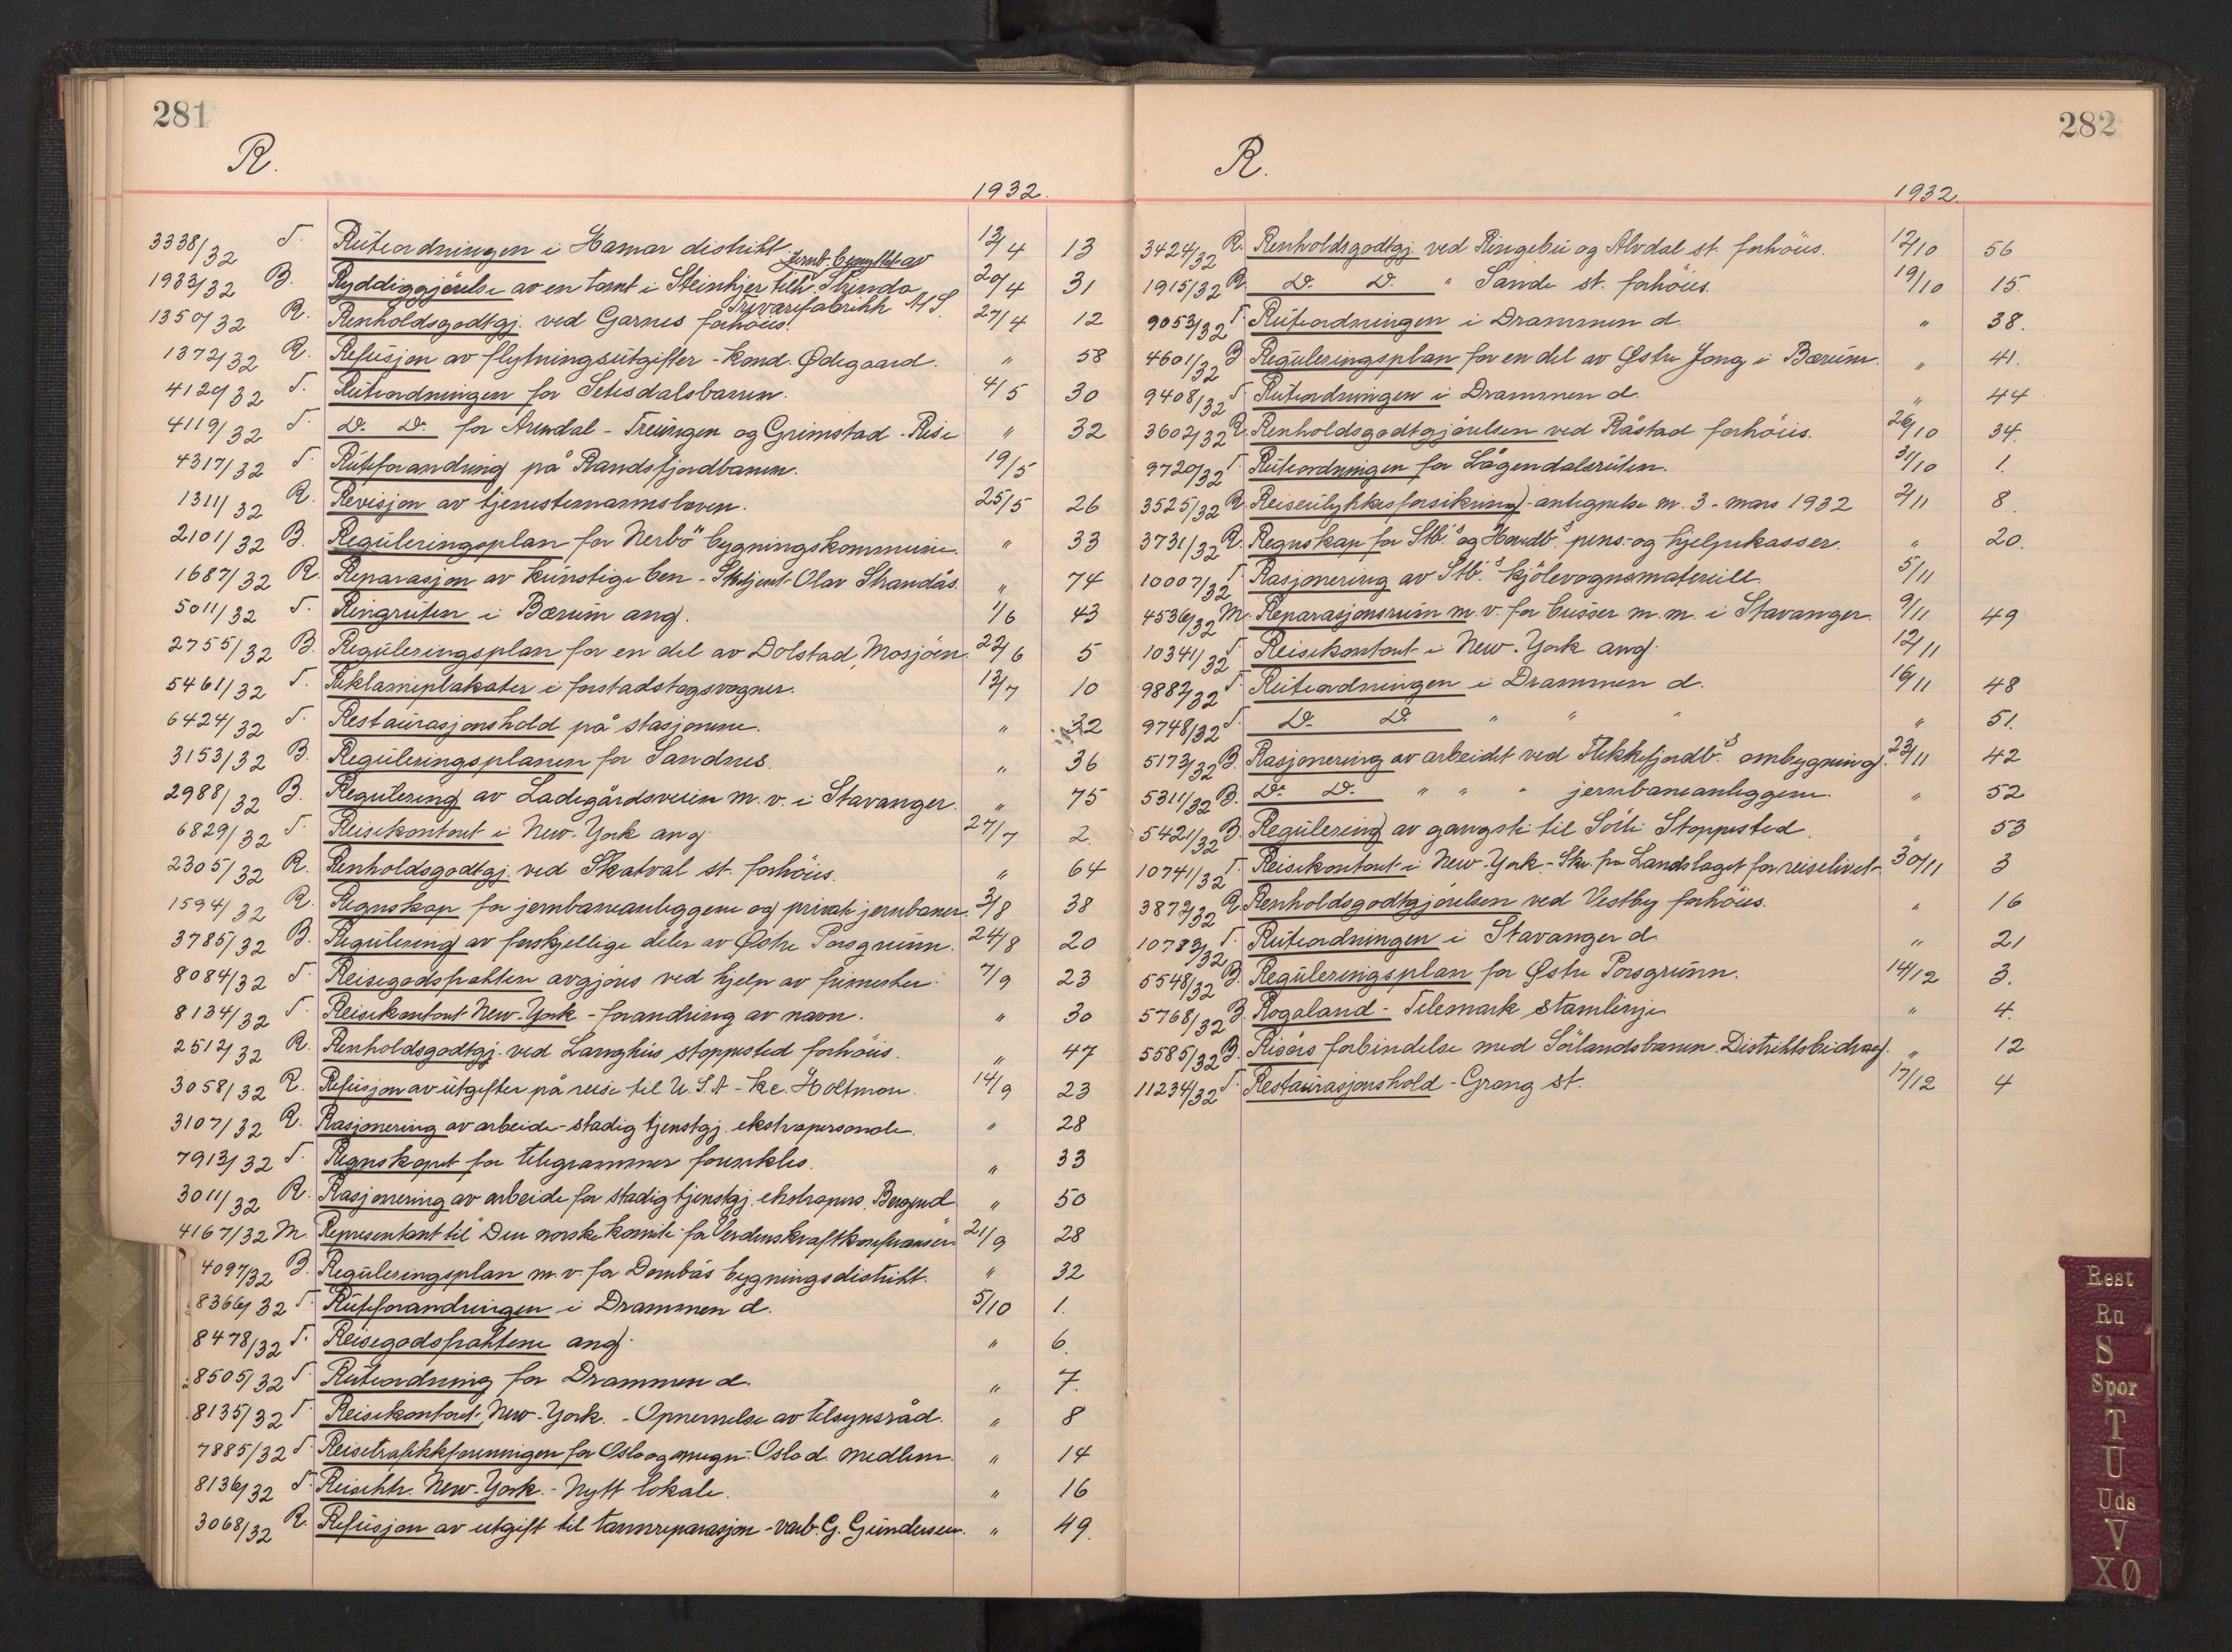 281
R.
1932.
3338/32 T. Ruteordningen i Hamar distrikt 13/4 13
jernb. benyttet av
1933/32 B. Ryddiggjørelse av en tomt i Steinkjer tilh. Strinda 20/4 31
Trevarefabrikk A/S.
1350/32 R. Renholdsgodtgj. ved Garnes forhöies. 27/4 12
1372/32 R. Refusjon av flytningsutgifter - Kond. Ødegaard. " 58
4129/32 T. Ruteordningen for Setesdalsbanen. 4/5 30
4119/32 T. Do. Do. for Arendal - Treungen og Grimstad - Rise " 32
4317/32 T. Ruteforandring på Randsfjordbanen. 19/5
1311/32 R. Revisjon av tjenestemannsloven. 25/5 26
2101/32 B. Reguleringsplan for Nerbö bygningskommune. " 33
1687/32 R. Reparasjon av kunstige ben - Stbtjent Olav Strandås. " 74
5011/32 T. Ringruten i Bærum ang. 1/6 43
2755/32 B. Reguleringsplan for en del av Dolstad, Mosjöen. 22/6 5
5461/32 T. Reklameplakater i forstadstogsvogner. 13/7 10
6424/32 T. Restaurasjonshold på stasjonene. " 32
3153/32 B. Reguleringsplanen for Sandnes. " 36
2988/32 B. Regulering av Ladegårdsveien m.v. i Stavanger. " 75
6829/32 T. Reisekontoret i New-York ang. 27/7 2.
2305/32 R. Renholdsgodtgj. ved Skatval st. forhöies. " 64
1594/32 R. Regnskap for jernbaneanleggene og private jernbaner. 3/8 38
3785/32 B. Regulering av forskjellige deler av Østre Porsgrunn. 24/8 20
8084/32 T. Reisegodsfrakten avgjöres ved hjelp av frimerker. 7/9 23
8134/32 T. Reisekontoret New-York - forandring av navn. " 30
2512/32 R. Renholdsgodtgj. ved Langhus stoppested forhöies. " 47
3058/32 R. Refusjon av utgifter på reise til U.S.A - ke. Holtmon. 14/9 23
3107/32 R. Rasjonering av arbeide - stadig tjenstgj. ekstrapersonale. " 28
7913/32 T. Regnskapet for telegrammer forenkles. " 33
3011/32 R. Rasjonering av arbeide for stadig tjenstgj. ekstrapers. Bergen d " 50
4167/32 M. Representant til "Den norske komité for Verdenskraftkonferansen" 21/9 28
4097/32 B. Reguleringsplan m.v. for Dombås bygningsdistrikt. " 32
8366/32 T. Ruteforandringen i Drammen d. 5/10 1.
8478/32 T. Reisegodsfraktene ang. " 6.
8505/32 T. Ruteordning for Drammen d. " 7.
8135/32 T. Reisekontoret, New-York. - Opnevnelse av tilsynsråd. " 8
7885/32 T. Reisetrafikkforeningen for Oslo og omegn - Oslo d. medlem. " 14
8136/32 T. Reisektr. New-York. - Nytt lokale. " 16
3068/32 R. Refusjon av utgift til tannreparasjon - varb. G. Gundersen. " 49.
282
R.
1932.
3424/32 R. Renholdsgodtgj. ved Ringebu og Alvdal st. forhöies. 12/10 56
1915/32 R. Do. Do. " Sande st. forhöies. 19/10 15.
9053/32 T. Ruteordningen i Drammen d. " 38.
4601/32 B Reguleringsplan for en del av Østre Jong i Bærum. " 41.
9408/32 T Ruteordningen i Drammen d. " 44
3602/32 R. Renholdsgodtgjörelsen ved Råstad forhöies. 26/10 34.
9720/32 T. Ruteordningen for Lågendalsruten. 31/10 1.
3525/32 R. Reiseulykkesforsikring - antegnelse nr. 3 - mars 1932 2/11 8
3731/32 R. Regnskap for Stb.s og Hovedb.s pens.- og hjelpekasser. " 20.
10007/32 T. Rasjonering av Stb.s kjölevognsmateriell. 5/11
4536/32 M. Reparasjonsrum m.v. for busser m.m. i Stavanger. 9/11 49
10341/32 T. Reisekontoret i New-York ang. 12/11
9882/32 T. Ruteordningen i Drammen d. 16/11 48
9748/32 T. Do. Do. " " " " 51.
5173/32 B. Rasjonering av arbeidet ved Flekkefjordb.s ombygning. 23/11 42
5311/32 B. Do. Do. " " " jernbaneanleggene. " 52
5421/32 B. Regulering av gangsti til Sörli Stoppested. " 53
10741/32 T. Reisekontoret i New-York. - Skr. fra Landslaget for reiselivet - 30/11 3
3872/32 R Renholdsgodtgjörelsen ved Vestby forhöies. " 16
10783/32 T. Ruteordningen i Stavanger d. " 21
5548/32 B Reguleringsplan for Østre Porsgrunn. 14/12 3.
5768/32 B. Rogaland - Telemark stamlinje " 4.
5585/32 B. Risörs forbindelse med Sörlandsbanen. Distriktsbidrag. " 12
11234/32 T. Restaurasjonshold - Grong st. 17/12 4
Rest
Ru
S
Spor
T
U
Uds
V
XØ